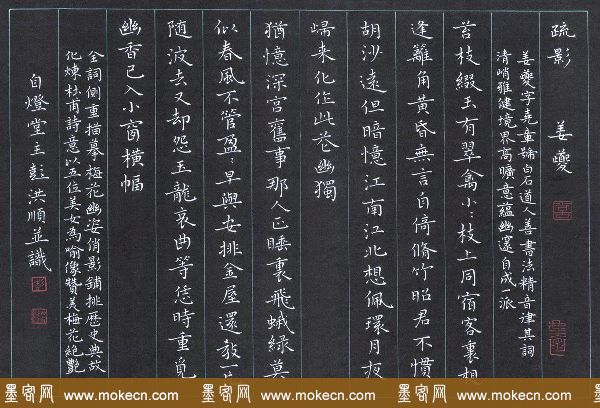 疏影 姜夔
姜夔字堯章號白石道人善書法精音律其詞
清峭雅健境界高曠意蘊幽邃自成一派
苔枝綴玉有翠禽小:枝上同宿客裏相
逢籬角黃昏無言自倚脩竹昭君不慣
胡沙遠但暗憶江南江北想佩環月夜
歸來化作此花幽獨
猶憶深宮舊事那人正睡裏飛蛾綠莫
似春風不管盈:早與安排金屋還教一片
隨波去又却怨玉龍哀曲等恁時重覓
幽香已入小窗橫幅
全詞側重描摹梅花幽姿俏影鋪排歷史典故
化煉杜甫詩意以五位美女為喻像贊美梅花絕艷
自燈堂主彭洪順並識
墨客网 墨客网 墨客网
www.mokecn.com www.mokecn.com www.mokecn.com